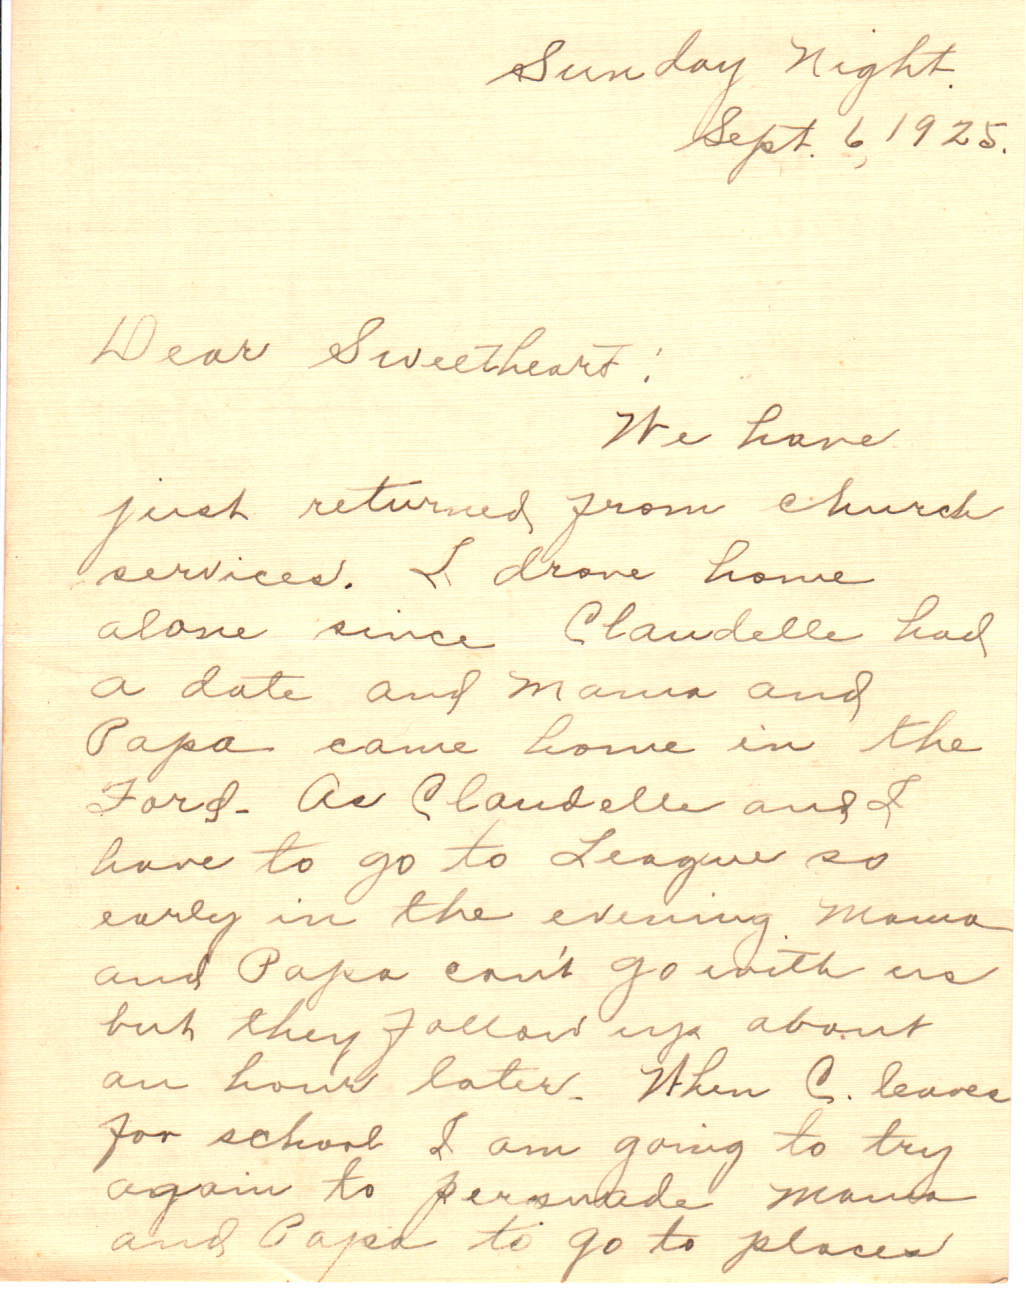 Sunday Night.
Sept. 6, 1925.
Dear Sweetheart:
We have
just returned from church
services. I drove home
alone since Claudelle had
a date and Mama and
Papa came home in the
Ford. As Claudelle and I
have to go to League so
early in the evening Mama
and Papa can't go with us
but they follow up about
an hour later. When C. leaves
for school I am going to try
again to persuade Mama
and Papa to go to places